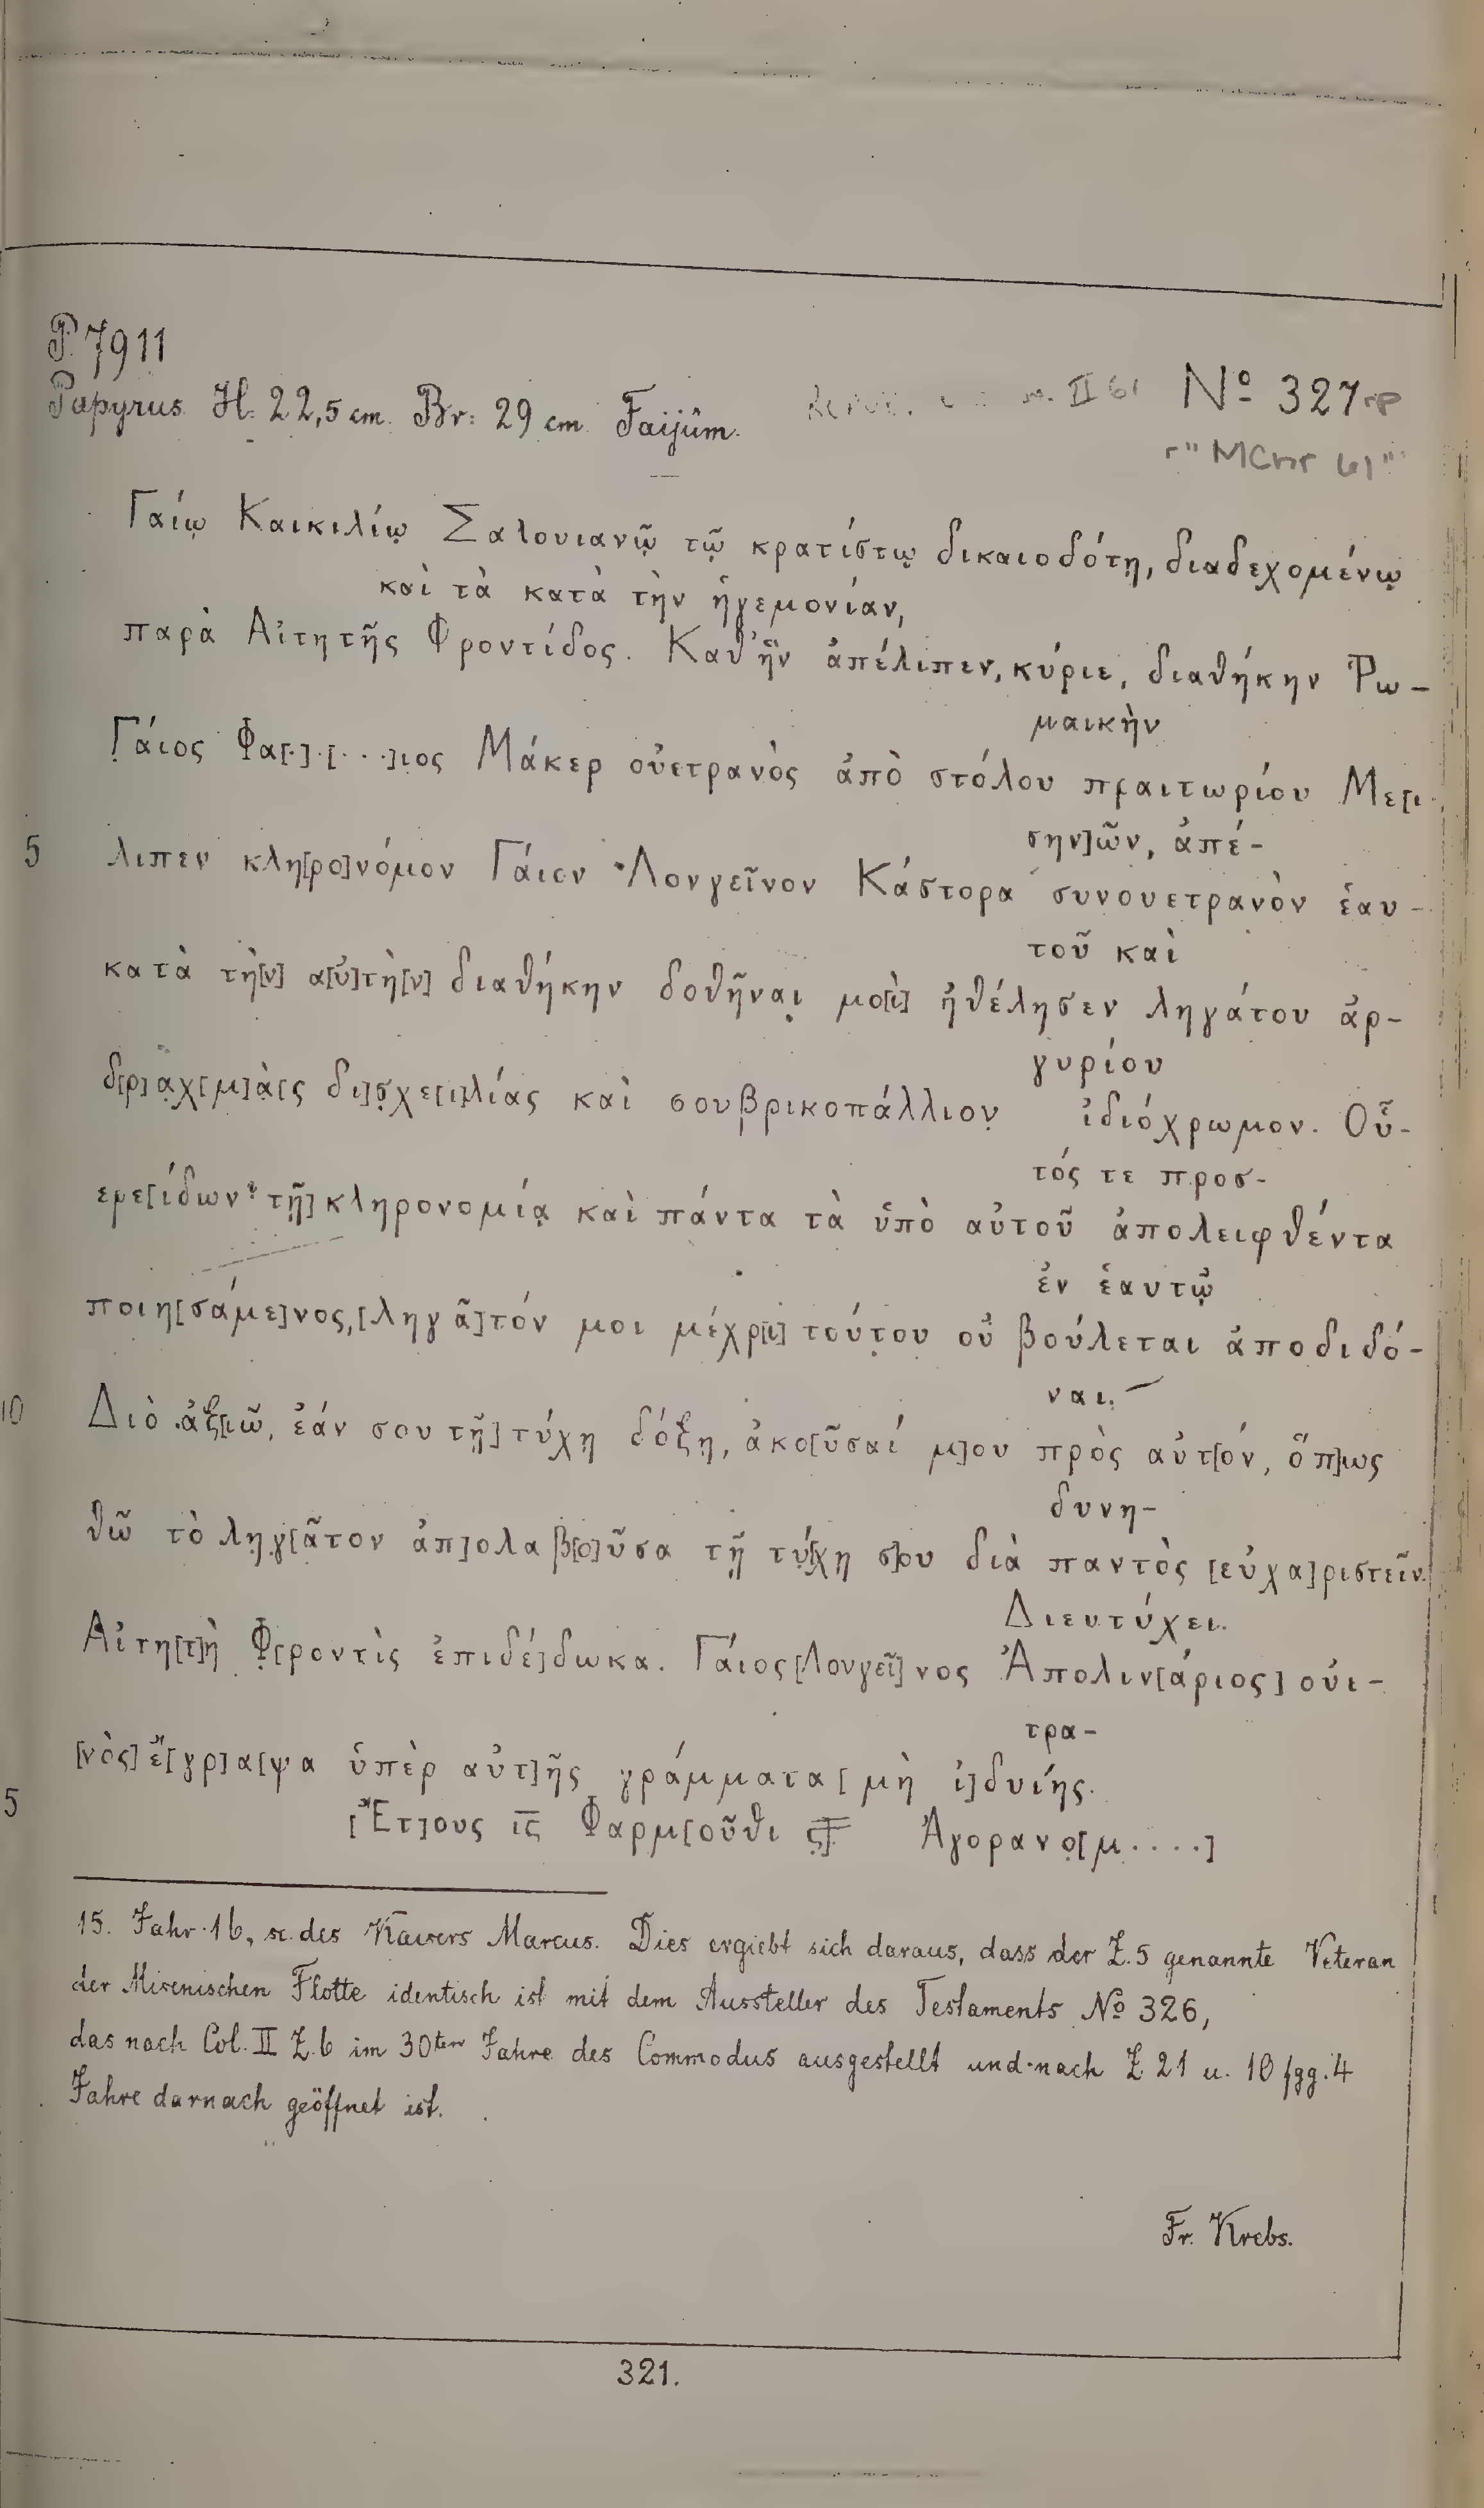 P. 7911
Papyrus H: 22,5 cm. Br: 29 cm. Faijûm.
II 61 Nº 327
"MChr 61"
Γαίῳ Καικιλίῳ Σαλουιανῷ τῷ κρατίστῳ δικαιοδότῃ, διαδεχομένῳ
καὶ τὰ κατὰ τὴν ἡγεμονίαν,
παρὰ Αἰτητῆς Φροντίδος. Καθ' ἣν ἀπέλιπεν, κύριε, διαθήκην Ῥω-
μαικὴν
Γάιος Φα[.].[...]ιος Μάκερ οὐετρανὸς ἀπὸ στόλου πραιτωρίου Με[ι-
σην]ῶν, ἀπέ-
5 λιπεν κλη[ρο]νόμον Γάιον Λονγεῖνον Κάστορα συνουετρανὸν ἑαυ-
τοῦ καὶ
κατὰ τὴ[ν] α[ὐ]τὴ[ν] διαθήκην δοθῆναι μο[ι] ἠθέλησεν ληγάτου ἀρ-
γυρίου
δ[ρ]αχ[μ]ὰ[ς δι]σχε[ι]λίας καὶ σουβρικοπάλλιον ἰδιόχρωμον. Οὗ-
τός τε προσ-
ερε[ίδων τῇ] κληρονομίᾳ καὶ πάντα τὰ ὑπὸ αὐτοῦ ἀπολειφθέντα
ἐν ἑαυτῷ
ποιη[σάμε]νος, [ληγᾶ]τόν μοι μέχρ[ι] τούτου οὐ βούλεται ἀποδιδό-
ναι.
10 Διὸ ἀξ[ιῶ, ἐάν σου τῇ] τύχῃ δόξῃ, ἀκο[ῦσαί μ]ου πρὸς αὐτ[όν, ὅπ]ως
δυνη-
θῶ τὸ ληγ[ᾶτον ἀπ]ολαβ[ο]ῦσα τῇ τύ[χῃ σ]ου διὰ παντὸς [εὐχα]ριστεῖν.
Διευτύχει.
Αἰτη[τ]ὴ Φ[ροντὶς ἐπιδέ]δωκα. Γάιος [Λονγεῖ]νος Ἀπολιν[άριος] οὐι-
τρα-
[νὸς] ἔ[γρ]α[ψα ὑπὲρ αὐτ]ῆς γράμματα [μὴ ἰ]δυίης.
5 [Ἔτ]ους ις Φαρμ[οῦθι ς]. Ἀγορανο[μ....]
15. Jahr 16, sc. des Kaisers Marcus. Dies ergiebt sich daraus, dass der Z. 5 genannte Veteran
der Misenischen Flotte identisch ist mit dem Aussteller des Testaments Nº 326,
das nach Col. II Z. 6 im 30ten Jahre des Commodus ausgestellt und nach Z 21 u. 10 fgg. 4
Jahre darnach geöffnet ist.
Fr. Krebs.
321.